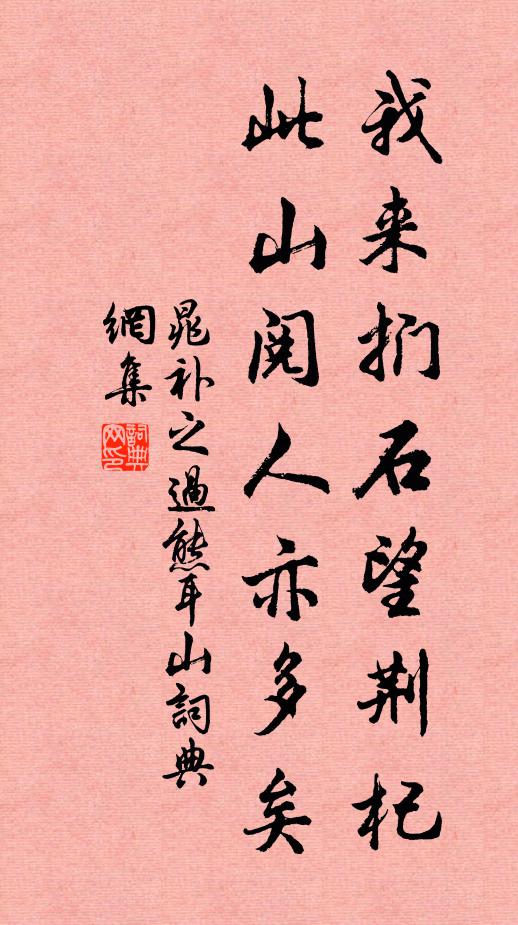 我来捫石望荆杞
此山閱人亦多矣
晁补之過熊耳山詞典
網集
詞典網印